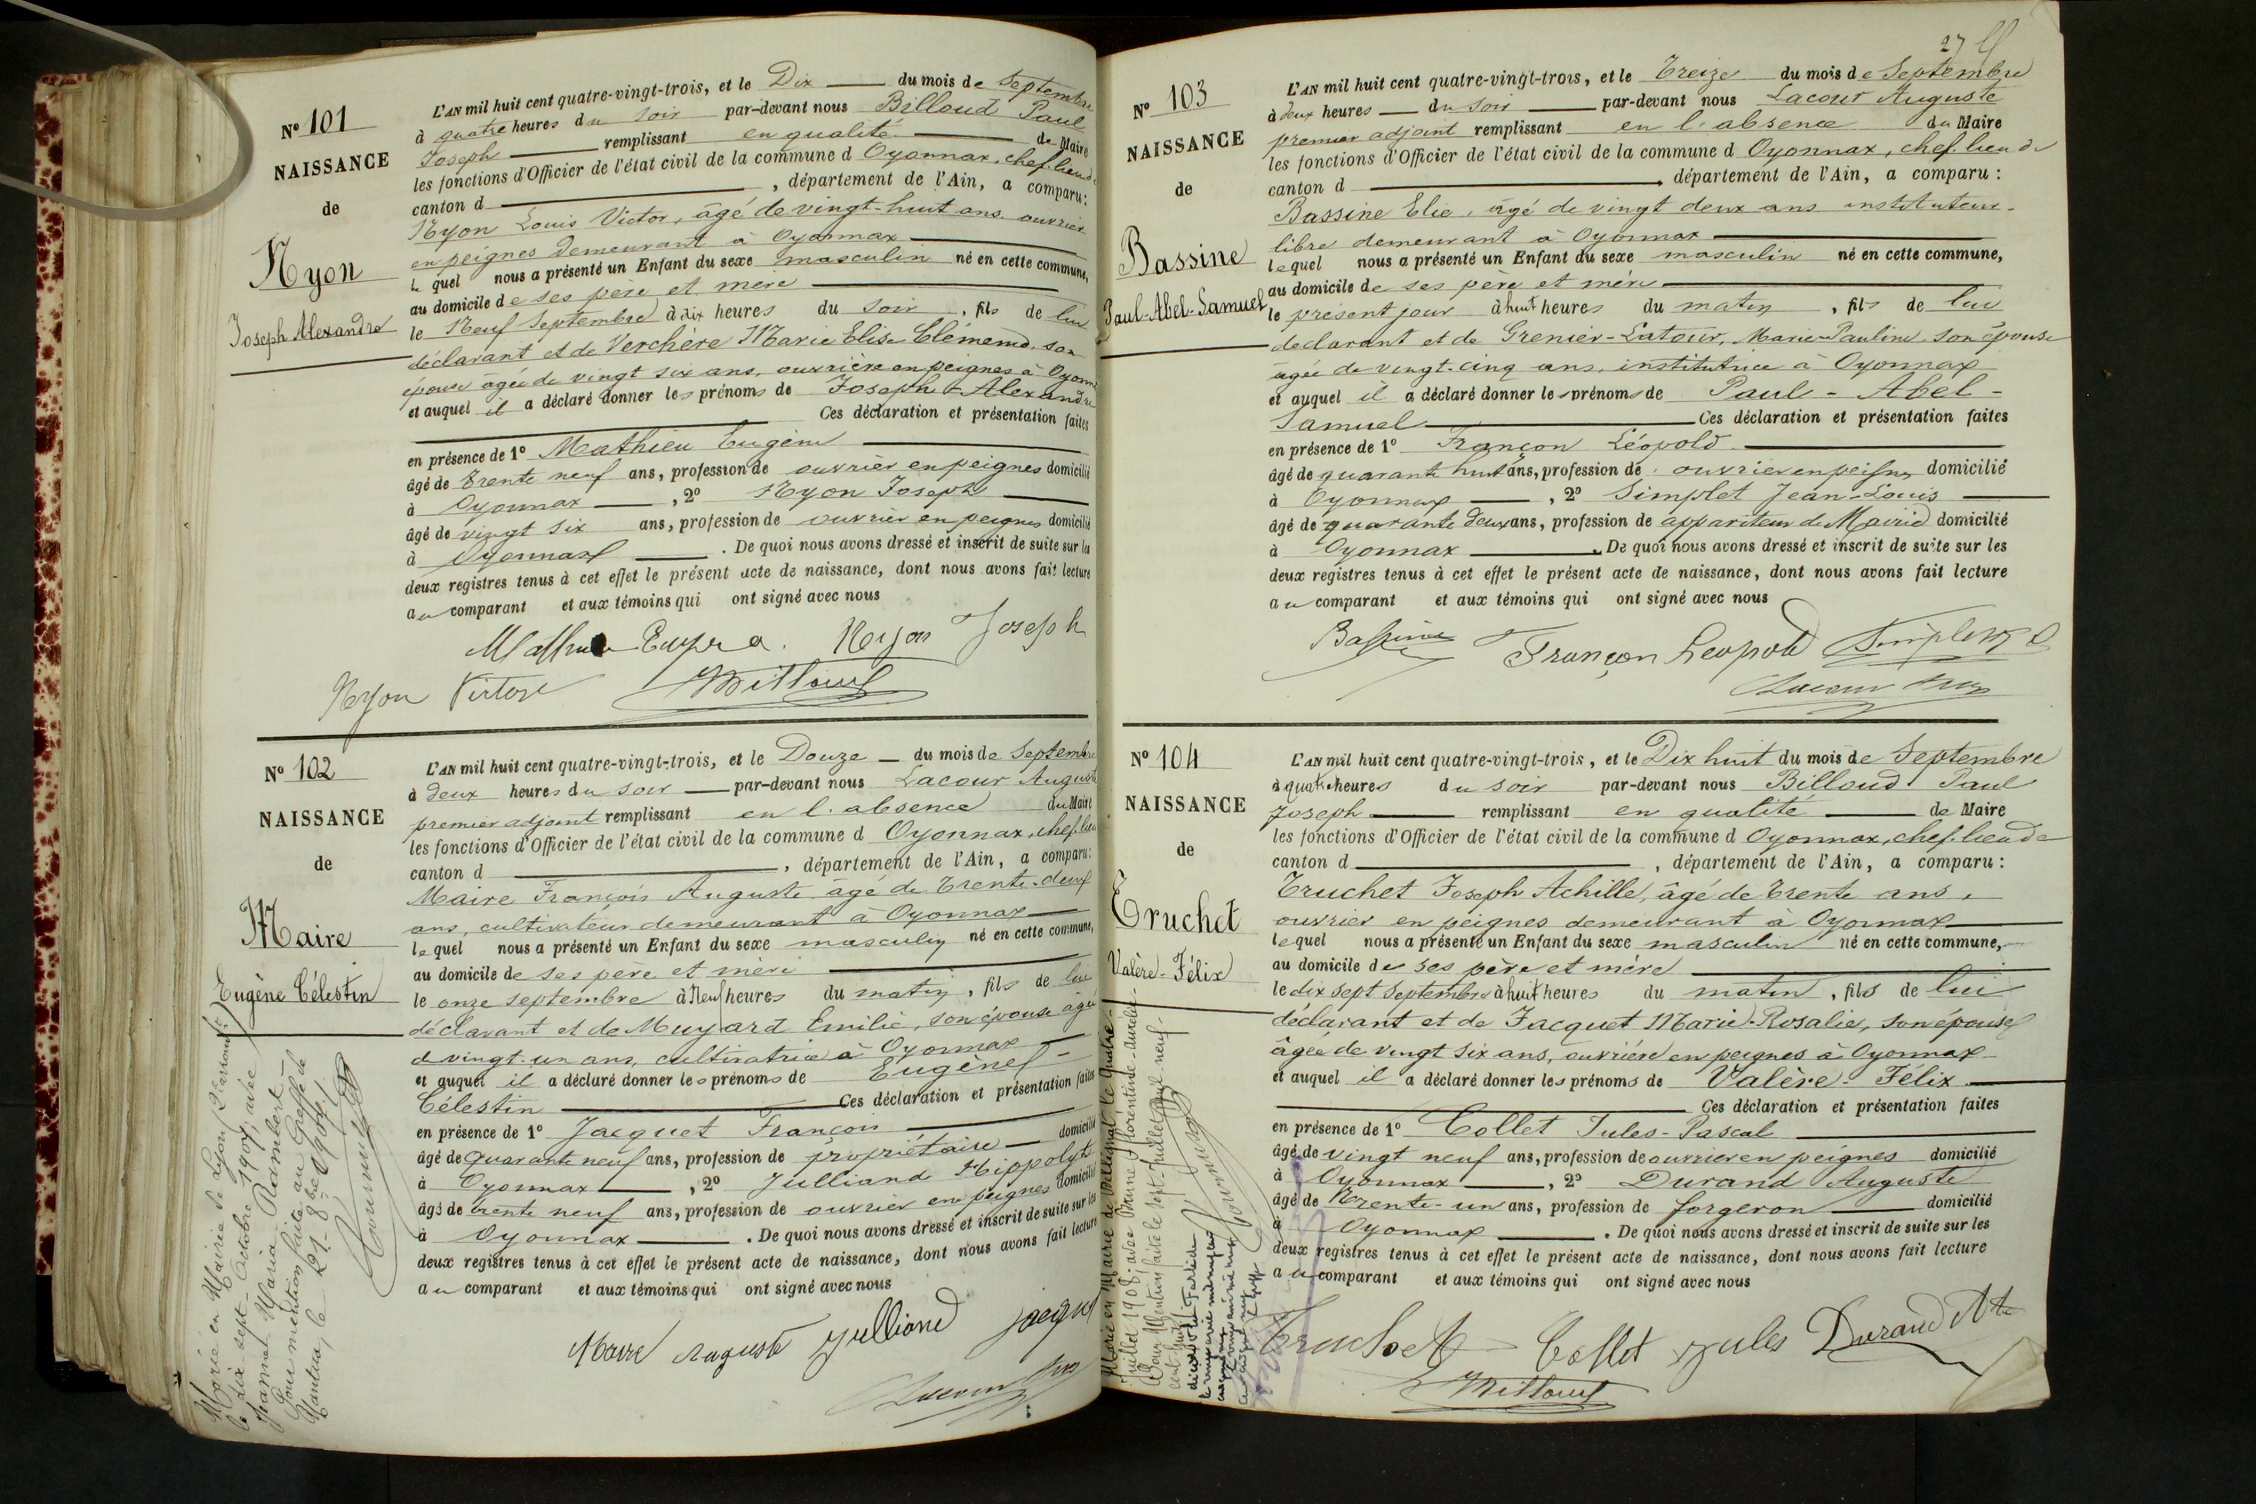 Nº 101
NAISSANCE
de
Nyon
Joseph Alexandre
L'AN mil huit cent quatre-vingt-trois, et le Dix du mois de Septembre
à quatre heures du soir par-devant nous Billoud Paul
Joseph remplissant en qualité de Maire
les fonctions d'Officier de l'état civil de la commune d Oyonnax, chef-lieu de
canton d , département de l'Ain, a comparu :
Nyon Louis Victor, âgé de vingt-huit ans ouvrier
en peignes demeurant à Oyonnax
lequel nous a présenté un Enfant du sexe masculin né en cette commune,
au domicile de ses père et mère
le Neuf Septembre à dix heures du soir, fils de lui
déclarant et de Verchère Marie Elise Clémend son
épouse âgée de vingt six ans, ouvrière en peignes à Oyonnax
et auquel il a déclaré donner les prénoms de Joseph-Alexandre
Ces déclaration et présentation faites
en présence de 1º Mathieu Eugène
âgé de trente neuf ans, profession de ouvrier en peignes domicilié
à Oyonnax , 2º Nyon Joseph
âgé de vingt six ans, profession de ouvrier en peignes domicilié
à Oyonnax . De quoi nous avons dressé et inscrit de suite sur les
deux registres tenus à cet effet le présent acte de naissance, dont nous avons fait lecture
au comparant et aux témoins qui ont signé avec nous
Nyon Joseph
Nyon Victor Billoud
Nº 102
NAISSANCE
de
Maire
Eugène Célestin
L'AN mil huit cent quatre-vingt-trois, et le Douze du mois de Septembre
à deux heures du soir par-devant nous Lacour Auguste
premier adjoint remplissant en l'absence du Maire
les fonctions d'Officier de l'état civil de la commune d Oyonnax, chef-lieu
canton d , département de l'Ain, a comparu :
Maire François Auguste âgé de trente-deux
ans, cultivateur demeurant à Oyonnax
lequel nous a présenté un Enfant du sexe masculin né en cette commune,
au domicile de ses père et mère
le onze septembre à Neuf heures du matin, fils de lui
déclarant et de Muyard Emilie, son épouse agée
d vingt-un ans, cultivatrice à Oyonnax
et auquel il a déclaré donner les prénoms de Eugène
Célestin Ces déclaration et présentation faites
en présence de 1º Jacquet François
âgé de quarante neuf ans, profession de propriétaire domicilié
à Oyonnax , 2º Julliand Hippolyte
âgé de trente neuf ans, profession de ouvrier en peignes domicilié
à Oyonnax . De quoi nous avons dressé et inscrit de suite sur les
deux registres tenus à cet effet le présent acte de naissance, dont nous avons fait lecture
au comparant et aux témoins qui ont signé avec nous
Maire Auguste Julliand Jacquet
Lacour
Marié en Mairie de Lyon, 2e arrondt
le dix-sept Octobre 1907, avec
Jeanne Maria Rambert
Pour mention faite au Greffe de
Nantua, le 21 8bre 1907.
Nº 103
NAISSANCE
de
Bassine
Paul-Abel-Samuel
27
L'AN mil huit cent quatre-vingt-trois, et le Treize du mois de Septembre
à deux heures du soir par-devant nous Lacour Auguste
premier adjoint remplissant en l'absence du Maire
les fonctions d'Officier de l'état civil de la commune d Oyonnax, chef-lieu de
canton d , département de l'Ain, a comparu :
Bassine Elie, âgé de vingt deux ans instituteur
libre demeurant à Oyonnax
lequel nous a présenté un Enfant du sexe masculin né en cette commune,
au domicile de ses père et mère
le présent jour à huit heures du matin, fils de lui
déclarant et de Grenier-Latour, Marie-Pauline son épouse
agée de vingt-cinq ans, institutrice à Oyonnax
et auquel il a déclaré donner les prénoms de Paul-Abel-
Samuel Ces déclaration et présentation faites
en présence de 1º Françon Léopold
âgé de quarante huit ans, profession de ouvrier en peignes domicilié
à Oyonnax , 2º Simplet Jean-Louis
âgé de quarante deux ans, profession de appariteur de Mairie domicilié
à Oyonnax . De quoi nous avons dressé et inscrit de suite sur les
deux registres tenus à cet effet le présent acte de naissance, dont nous avons fait lecture
au comparant et aux témoins qui ont signé avec nous
Bassine Françon Leopold Simplet
Lacour
Nº 104
NAISSANCE
de
Truchet
Valère-Félix
L'AN mil huit cent quatre-vingt-trois, et le Dix huit du mois de Septembre
à quatre heures du soir par-devant nous Billoud Paul
Joseph remplissant en qualité de Maire
les fonctions d'Officier de l'état civil de la commune d Oyonnax, chef-lieu de
canton d , département de l'Ain, a comparu :
Truchet Joseph Achille, âgé de trente ans,
ouvrier en peignes demeurant à Oyonnax
lequel nous a présenté un Enfant du sexe masculin né en cette commune,
au domicile de ses père et mère
le dix sept Septembre à huit heures du matin, fils de lui
déclarant et de Jacquet Marie-Rosalie, son épouse
âgée de vingt six ans, ouvrière en peignes à Oyonnax
et auquel il a déclaré donner les prénoms de Valère-Félix
Ces déclaration et présentation faites
en présence de 1º Collet Jules-Pascal
âgé de vingt neuf ans, profession de ouvrier en peignes domicilié
à Oyonnax , 2º Durand Auguste
âgé de trente-un ans, profession de forgeron domicilié
à Oyonnax . De quoi nous avons dressé et inscrit de suite sur les
deux registres tenus à cet effet le présent acte de naissance, dont nous avons fait lecture
au comparant et aux témoins qui ont signé avec nous
Truchet Collet Jules Durand Ate
Billoud
Marié en Mairie de le quatre
Juillet 1908, avec Brune Florentine-Aurélie
Pour Mention faite le sept Juillet